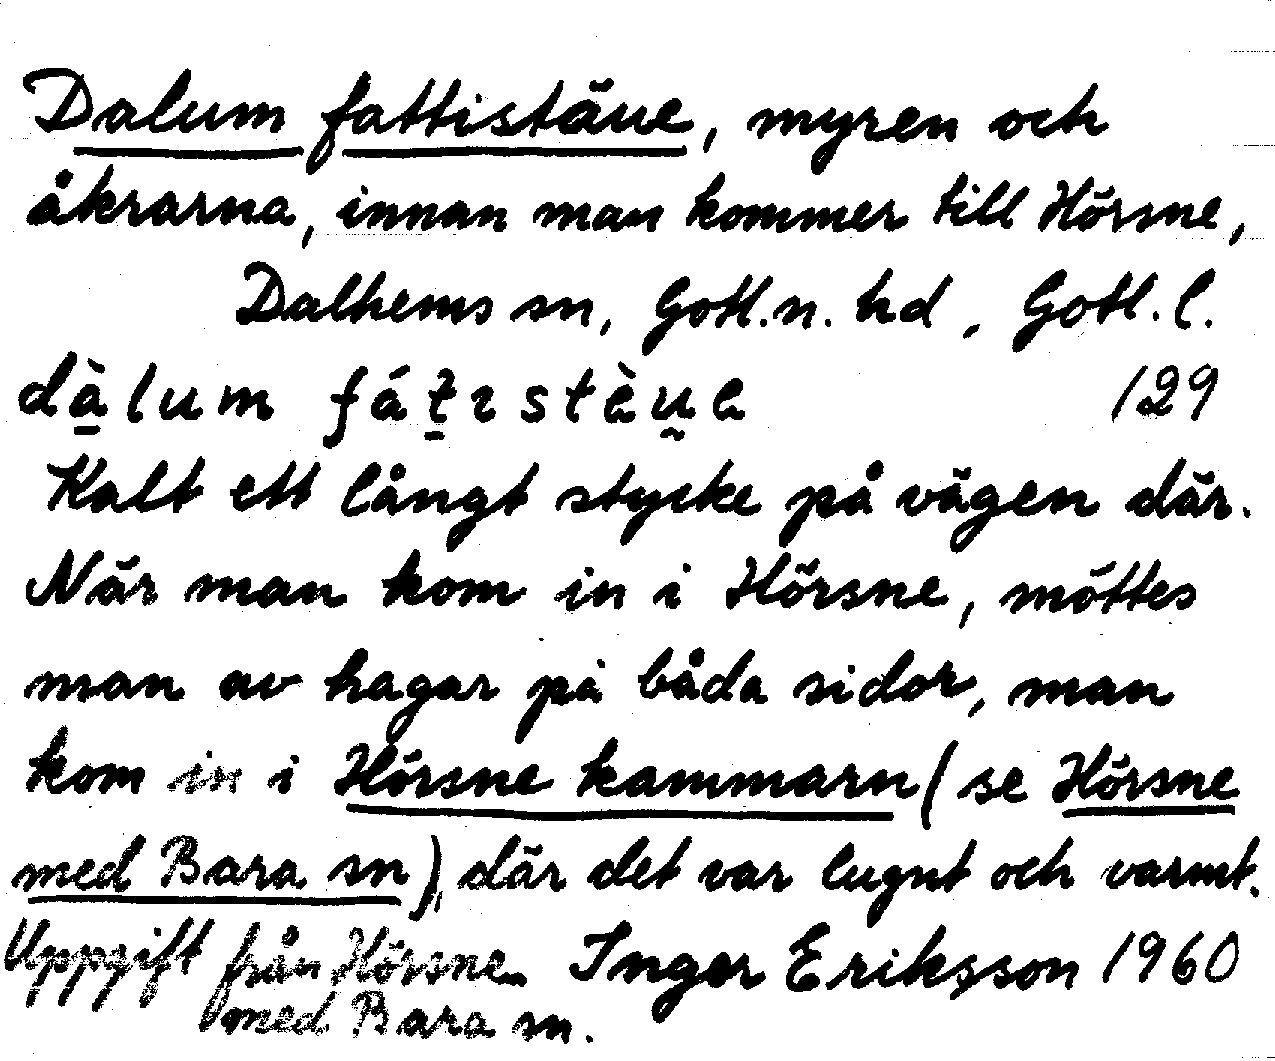 Dalum fattistäue, myren och
åkrarna, innan man kommer till Hörsne,
Dalhems sn, Gotl.n. hd, Gotl. l.
dà̱lum fát̠ɪstèu̯e 129
Kalt ett långt stycke på vägen där.
När man kom in i Hörsne, möttes
man av hagar på båda sidor, man
kom in i Hörsne kammarn (se Hörsne
med Bara sn), där det var lugnt och varmt.
Uppgift från Hörsne Inger Eriksson 1960
med Bara sn.